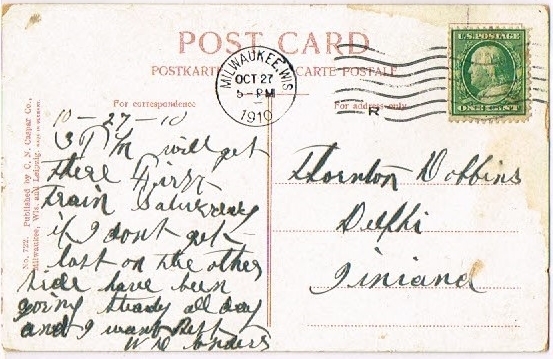 POST CARD
POSTKARTE CARTE POSTALE
U.S. POSTAGE
ONE CENT
MILWAUKEE, WIS.
OCT 27
5-PM
1910
R
For correspondence
For address only
No. 722. Published by C. N. Caspar Co.,
Milwaukee, Wis. and Leipzig.
10-27-10
3 P M will get
there first
train Saturday
if I dont get
lost on the other
side have been
going steady all day
and I want rest
W D
Thornton Dobbins
Delphi